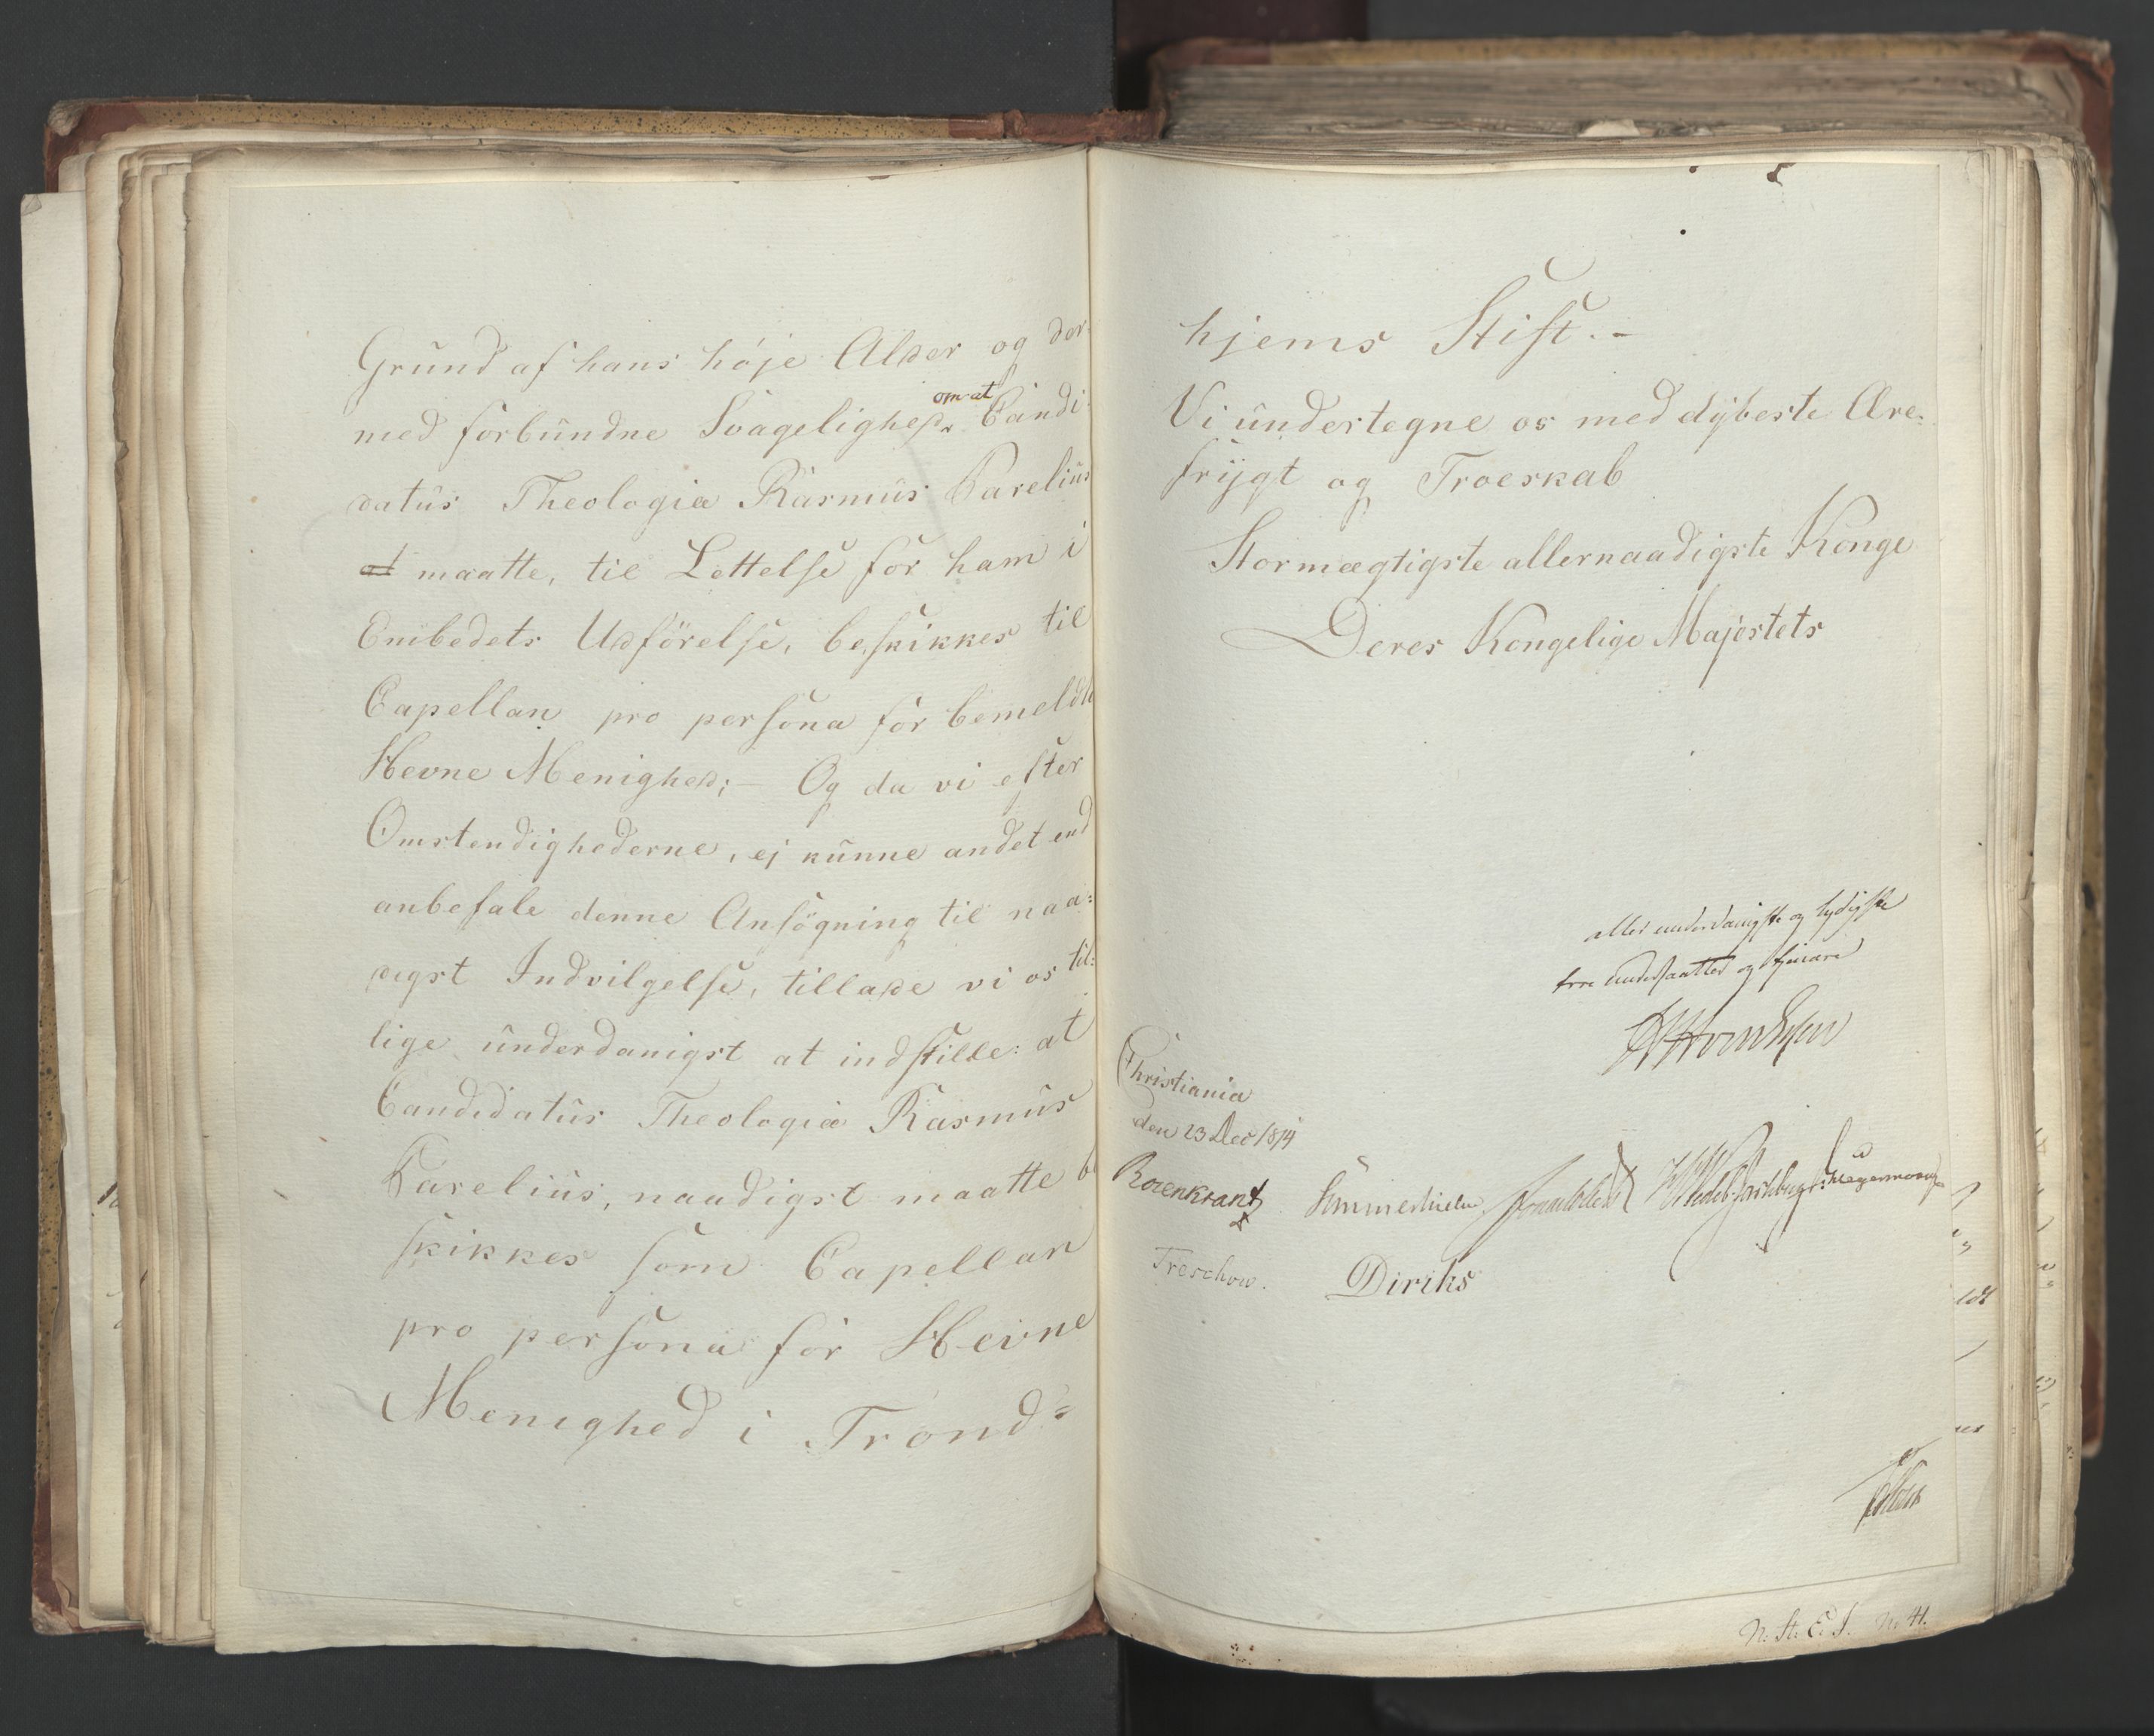 Grund af hans høje Alder og der-
med forbundne Svagelighed, om at Candi-
datus Theologiæ Rasmus Parelius
at maatte, til Lettelse for ham i
Embedets Udförelse, beskikkes til
Capellan pro persona for bemeldte
Hevne Menighed; – Og da vi efter
Omstendighederne, ej kunne andet end
anbefale denne Ansögning til naa=
digst Indvilgelse, tillade vi os til:
lige underdanigst at indstille: at
Candidatus Theologiæ Rasmus
Parelius, naadigst maatte be
skikkes som Capellan
pro persona for Hevne
Menighed i Trond=
hjems Stift. –
Vi undertegne os med dybeste Ære:
frygt og Troeskab
Stormægtigste allernaadigste Konge
Deres Kongelige Majestets
aller underdanigste og lydigste
troe undersaatter og tjenere
Christiania
den 23 Dec 1814
Rosenkrantz
Sommerhielm
Hegermann
Treschow.
Diriks
N. St. E. J. N. 41.